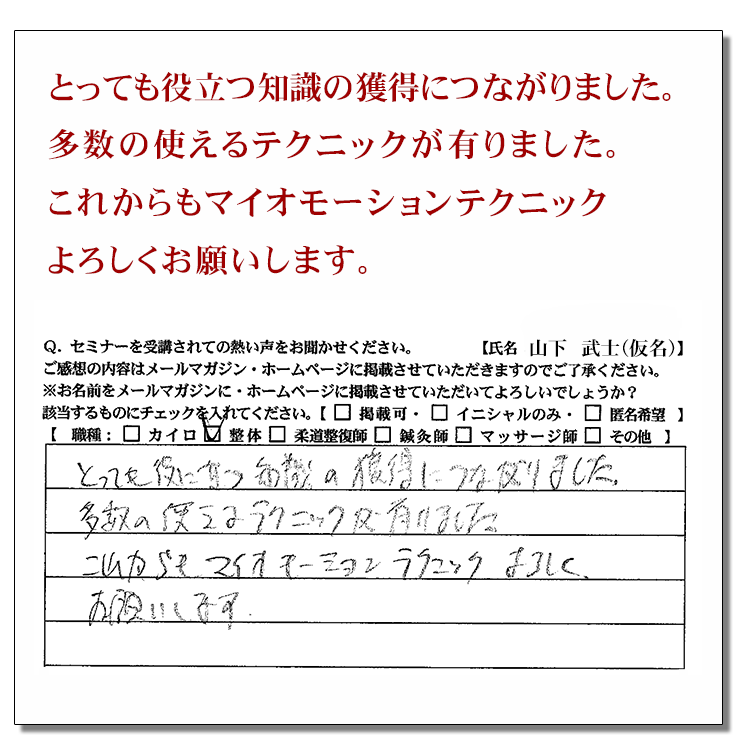 とっても役立つ知識の獲得につながりました。
多数の使えるテクニックが有りました。
これからもマイオモーションテクニック
よろしくお願いします。
Q. セミナーを受講されての熱い声をお聞かせください。 【氏名 山下 武士(仮名)】
ご感想の内容はメールマガジン・ホームページに掲載させていただきますのでご了承ください。
※お名前をメールマガジンに・ホームページに掲載させていただいてよろしいでしょうか？
該当するものにチェックを入れてください。【 □ 掲載可・ □ イニシャルのみ・ □ 匿名希望 】
【 職種： □ カイロ ☑ 整体 □ 柔道整復師 □ 鍼灸師 □ マッサージ師 □ その他 】
とっても役に立つ知識の獲得につながりました。
多数の使えるテクニックが有りました
これからもマイオモーションテクニックよろしく、
お願いします.